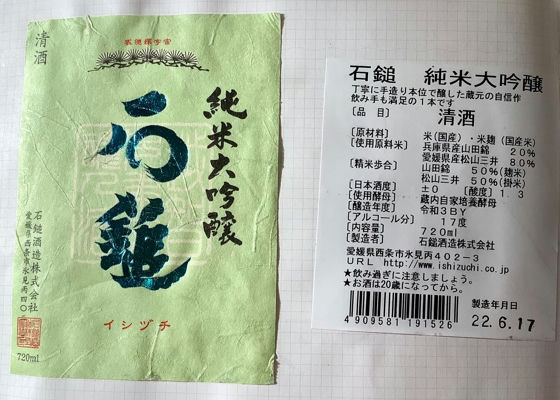 清酒
純米大吟醸
石鎚
イシヅチ
石鎚酒造株式会社
愛媛県西条市氷見丙402-3
720ml
石鎚 純米大吟醸
丁寧に手造り本位で醸した蔵元の自信作
飲み手も満足の1本です
〔品 目〕 清酒
〔原材料〕 米(国産)・米麹(国産米)
〔使用原料米〕 兵庫県産山田錦 20%
愛媛県産松山三井 80%
〔精米歩合〕 山田錦 50%(麹米)
松山三井 50%(掛米)
〔日本酒度〕 ±0 〔酸度〕1.3
〔使用酵母〕 蔵内自家培養酵母
〔醸造年度〕 令和3BY
〔アルコール分〕 17度
〔内容量〕 720ml
〔製造者〕 石鎚酒造株式会社
愛媛県西条市氷見丙402-3
URL http://www.ishizuchi.co.jp
★飲み過ぎに注意しましょう。
★お酒は20歳になってから。
4909581191526
製造年月日
22.6.17